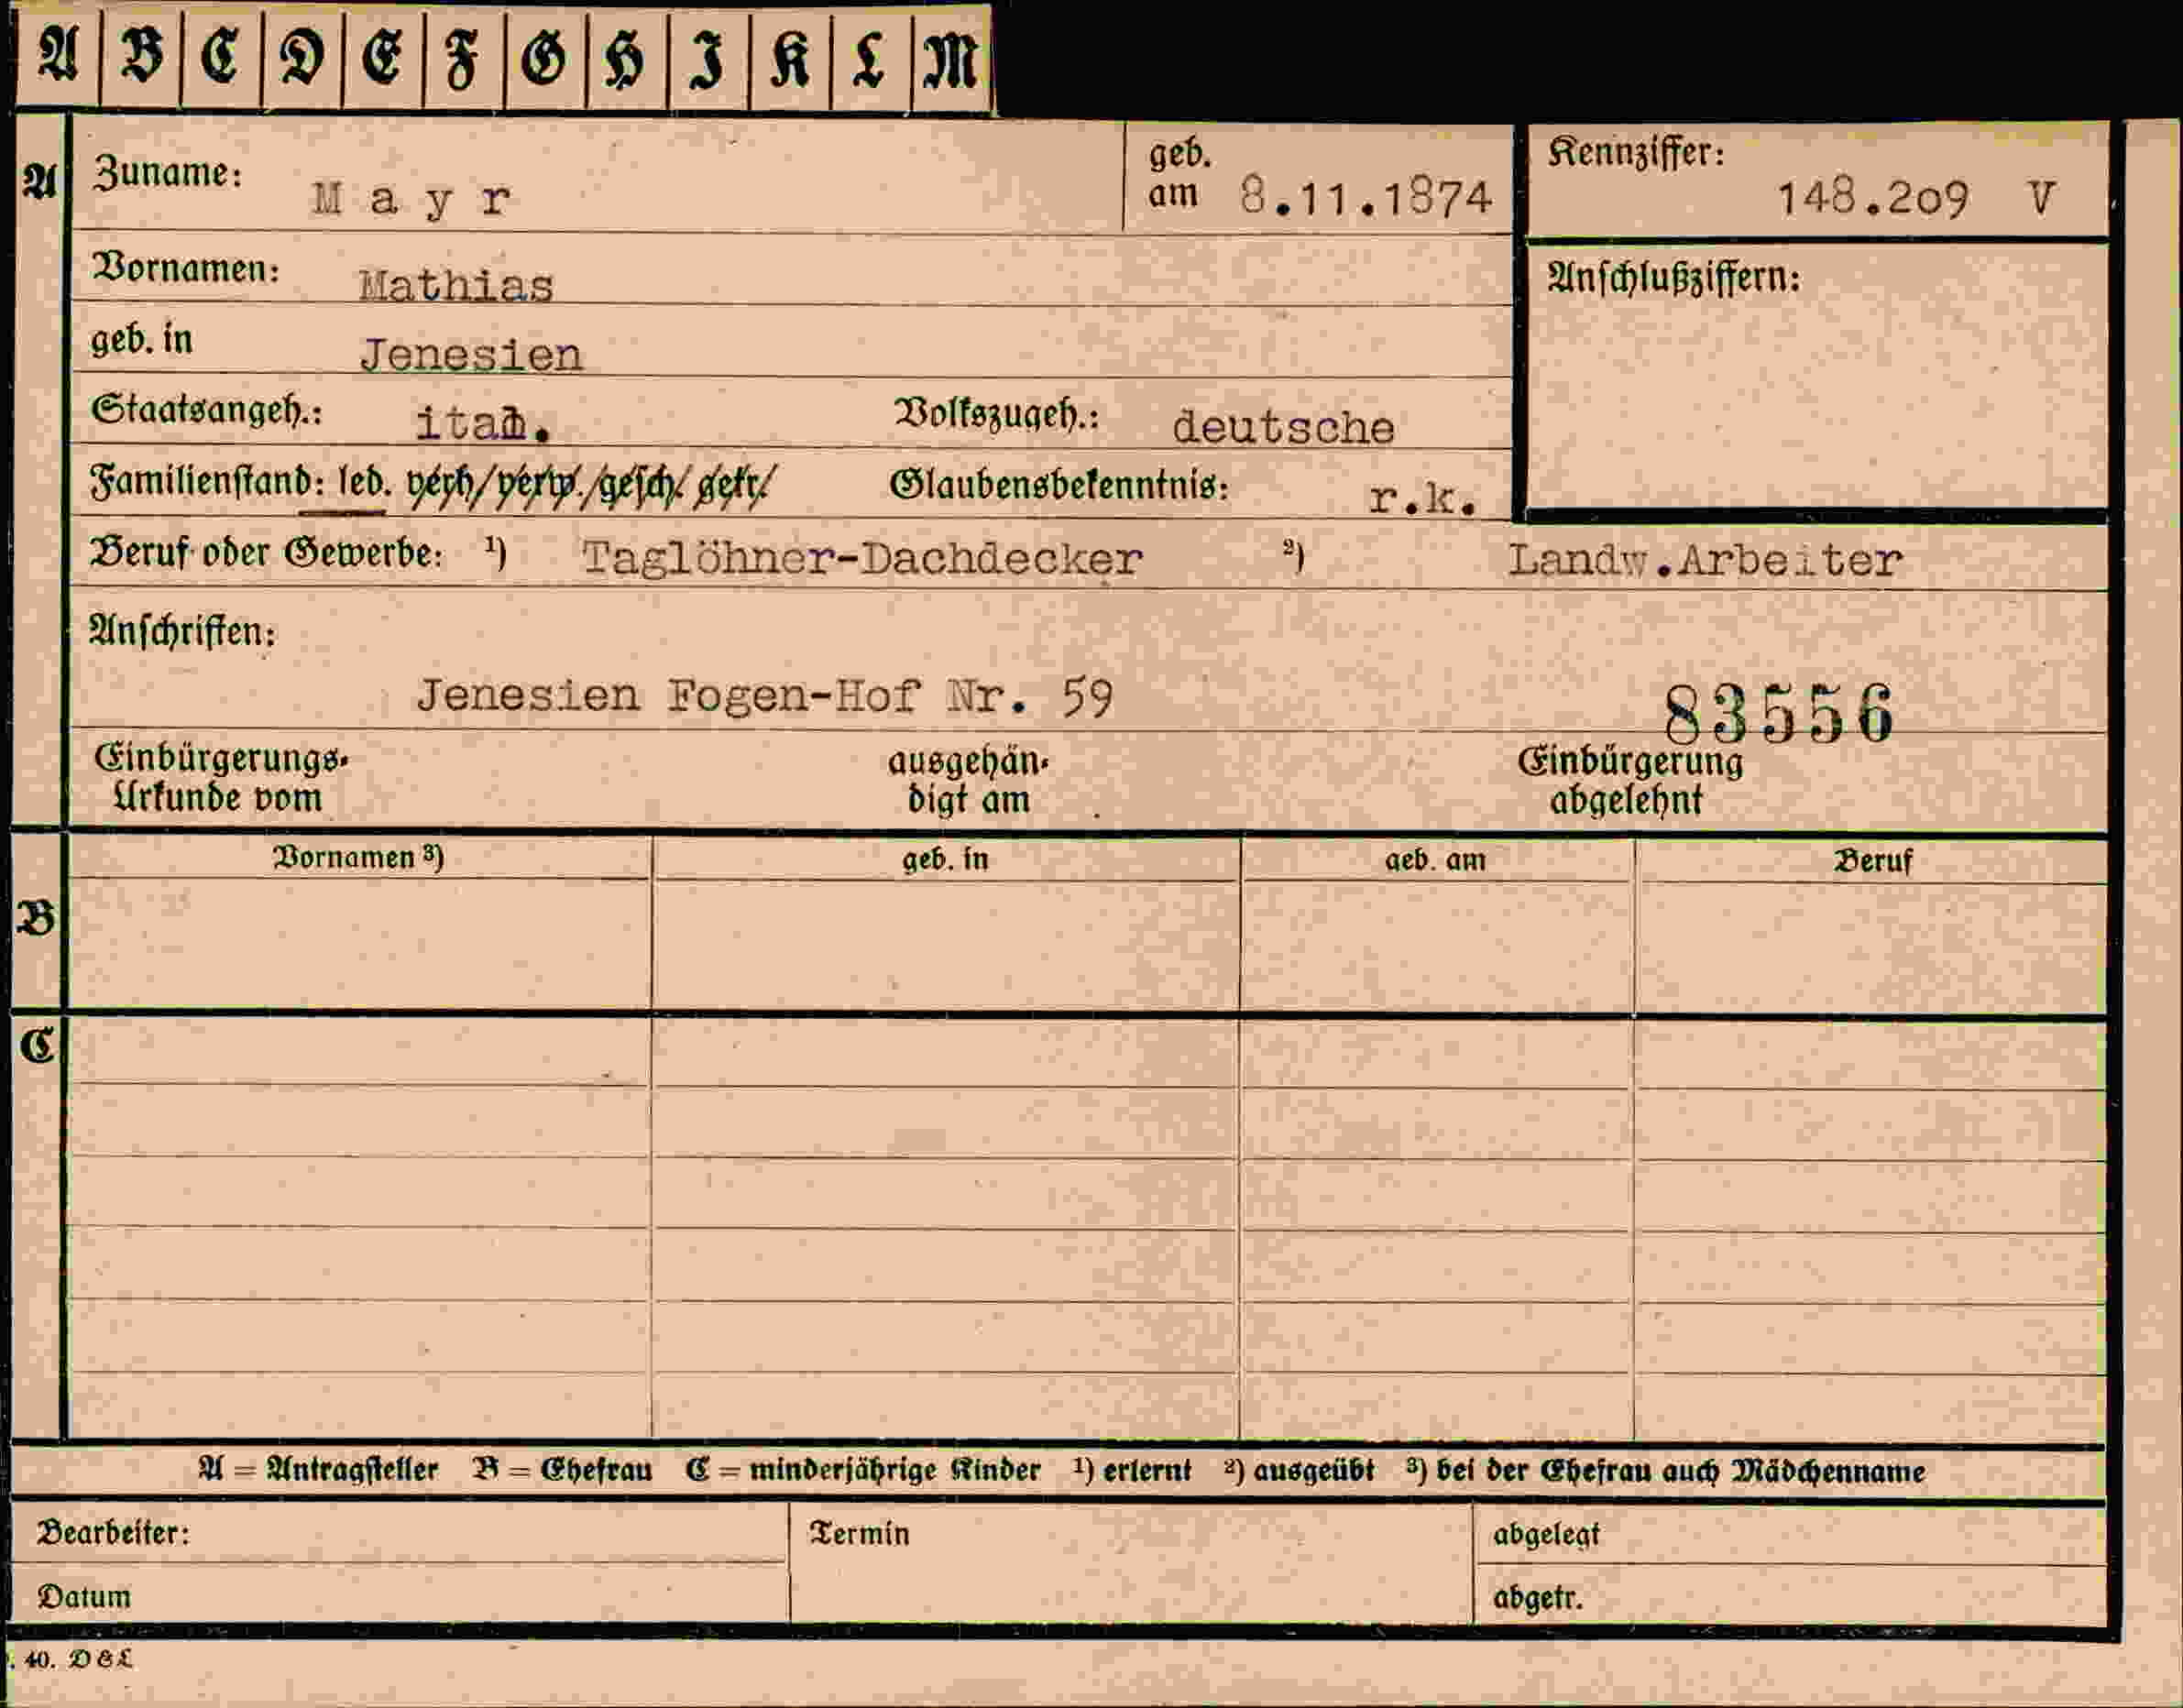 A B C D E F G H I K L M
A Zuname: Mayr geb. am 8.11.1874 Kennziffer: 148.209 V
Vornamen: Mathias Anschlußziffern:
geb. in Jenesien
Staatsangeh.: ital. Volkszugeh.: deutsche
Familienstand: led. verh/verw./gesch/getr/ Glaubensbekenntnis: r.k.
Beruf oder Gewerbe: ¹) Taglöhner-Dachdecker ²) Landw.Arbeiter
Anschriften:
Jenesien Fogen-Hof Nr. 59 83556
Einbürgerungs- ausgehän- Einbürgerung
Urkunde vom digt am abgelehnt
Vornamen ³) geb. in geb. am Beruf
B
C
A = Antragsteller B = Ehefrau C = minderjährige Kinder ¹) erlernt ²) ausgeübt ³) bei der Ehefrau auch Mädchenname
Bearbeiter: Termin abgelegt
Datum abgetr.
. 40. D & L